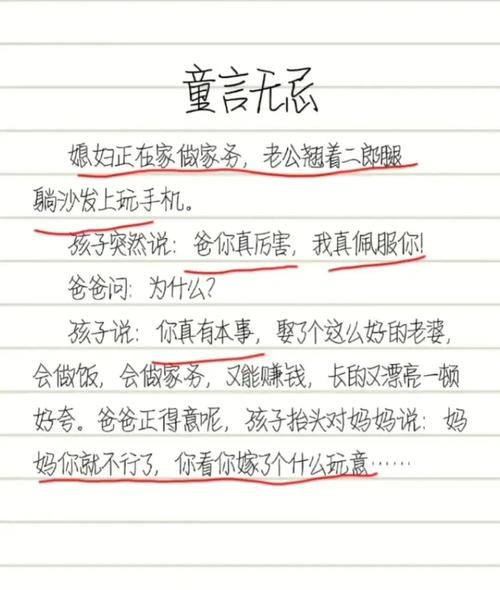 童言无忌
媳妇正在家做家务，老公翘着二郎腿
躺沙发上玩手机。
孩子突然说：爸你真厉害，我真佩服你!
爸爸问：为什么?
孩子说：你真有本事，娶了个这么好的老婆，
会做饭，会做家务，又能赚钱，长的又漂亮一顿
好夸。爸爸正得意呢，孩子抬头对妈妈说：妈
妈你就不行了，你看你嫁了个什么玩意……